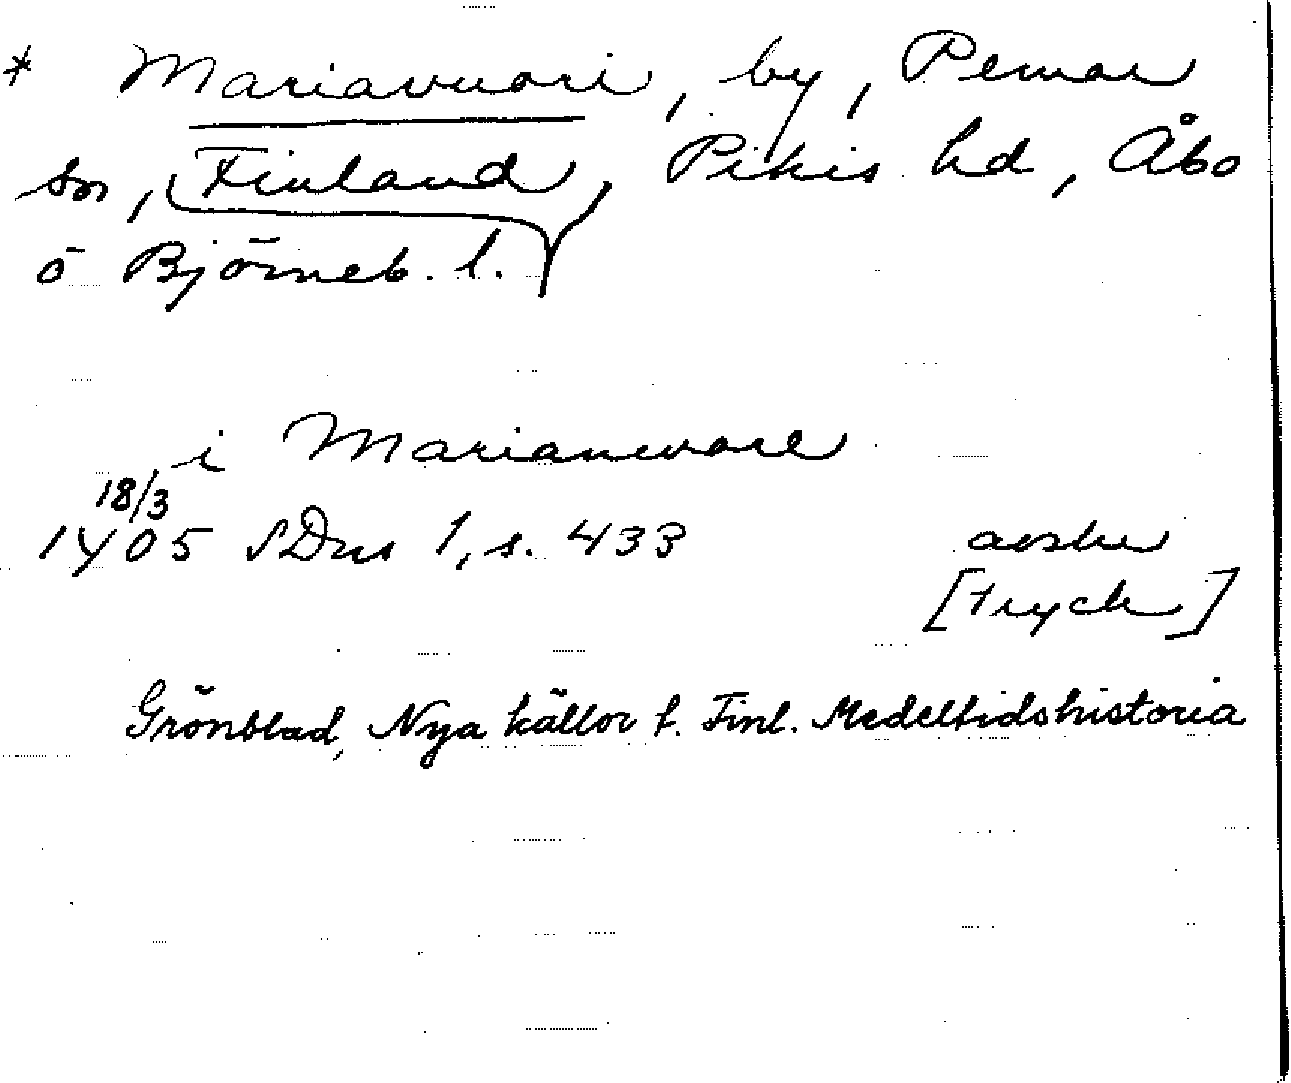 * Mariavuori, by, Pemar
sn, Finland, Pikis hd, Åbo
o Björneb. l.
i Marianwore
18/3
1405 SDns 1, s. 433 avskr
[tryck]
Grönblad, Nya källor t. Finl. Medeltidshistoria